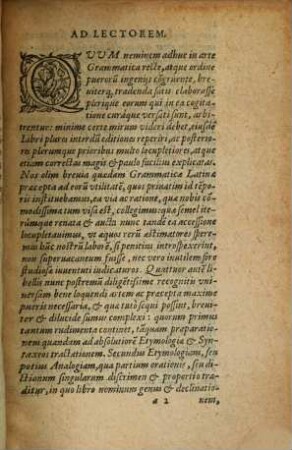 AD LECTOREM.
QVVM neminem adhuc in arte
Grammatica recte, atque ordine
puerorũ ingeniis cõgruente, bre-
uiterq́, tradenda satis elaborasse
plerique eorum qui in ea cogita-
tione curáque versati sunt, ar-
bitrentur: minime certe mirum videri debet, eiusdẽ
Libri plures interdũ editiones reperiri, ac posterio-
rem plerumque prioribus multo locupletiorem, atque
etiam correctas magis & paulo facilius explicatas.
Nos olim breuia quædam Grammaticæ Latinæ
præcepta ad eorũ vtilitatẽ, quos priuatim id tẽpo-
ris instituebamus, ea via ac ratione, quæ nobis cõ-
modissima tum visa est, collegimus: quæ semel ite-
rúmque renata & aucta nunc tandẽ ea accessione
locupletauimus, vt æquos rerũ æstimatores spere-
mus hũc nostrũ laborẽ, si penitius introspexerint,
non superuacaneum fuisse, nec vero inutilem fore
studiosæ iuuentuti iudicaturos. Quattuor autẽ li-
bellis nunc postremũ diligẽtissime recognitis vni-
uersam bene loquendi artem ac præcepta maxime
pueris necessaria, & quæ tutò sequi possint, breui-
ter & dilucide sumus complexi: quorum primus
tantum rudimenta continet, tãquam præparatio-
nem quandam ad absolutiorẽ Etymologiæ & Syn-
taxeos tractationem. Secundus Etymologiam, seu
potius Analogiam, quæ partium orationis, seu di-
ctionum singularum discrimen & proportio tra-
ditur, in quo libro nominum genus & declinatio-
a 2 nem,